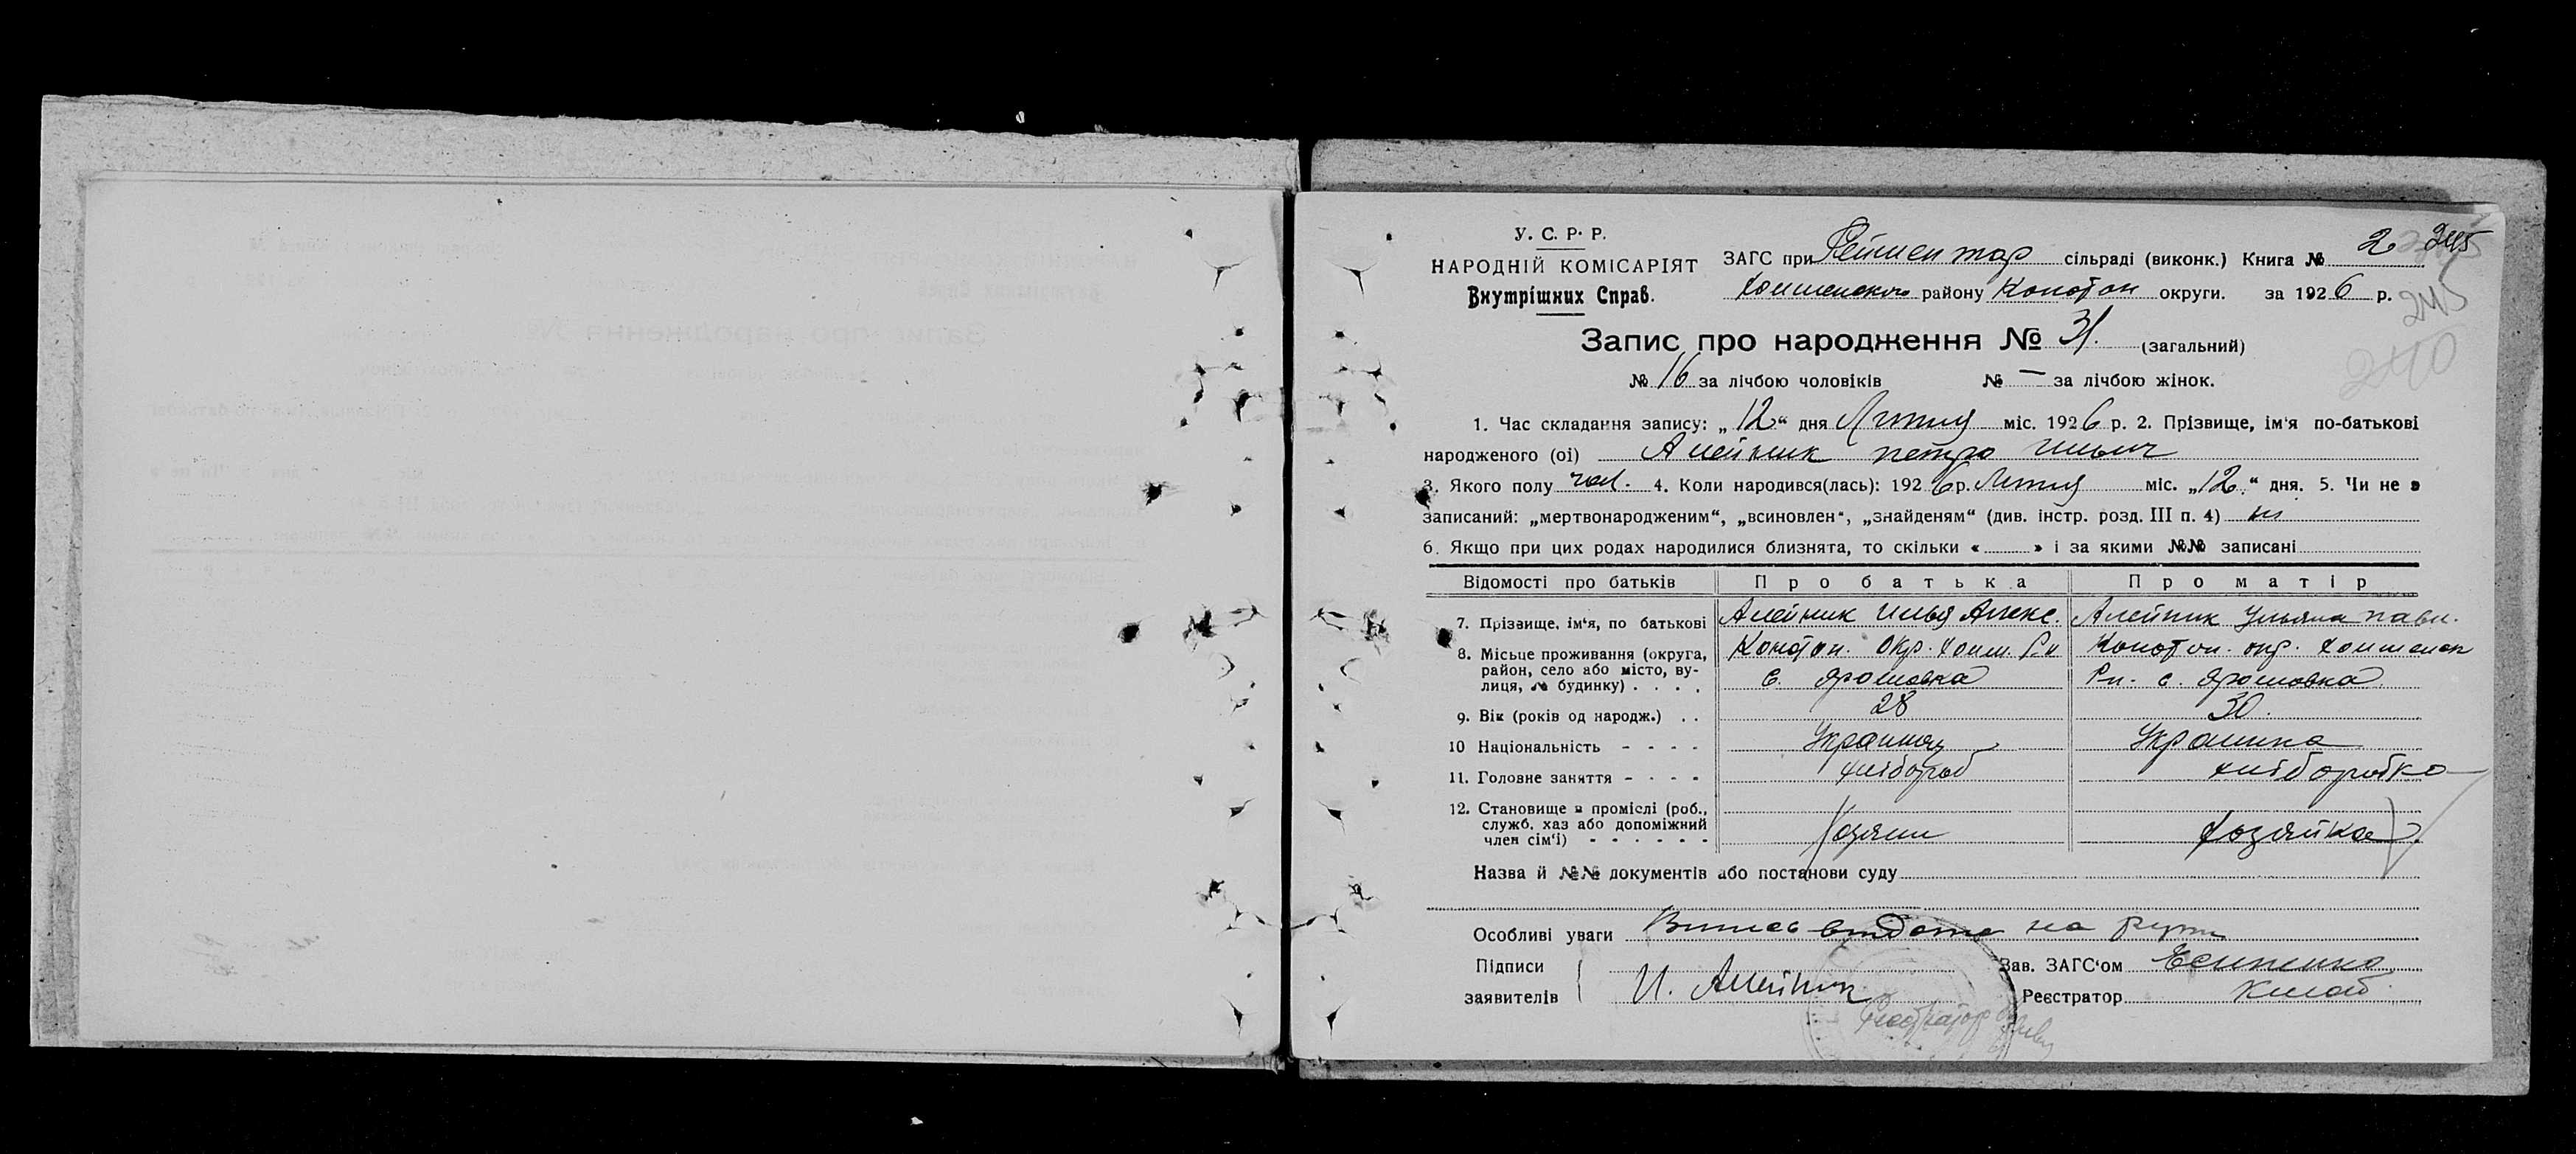 У. С. Р. Р.
НАРОДНІЙ КОМІСАРІЯТ
Внутрішних Справ.
ЗАГС при Рейментар сільраді (виконк.) Книга № 2 245
району Конотоп округи. за 1926 р.
245
240
Запис про народження № 31. (загальний)
№ 16 за лічбою чоловіків № — за лічбою жінок.
1. Час складання запису: „12“ дня Лютня міс. 1926 р. 2. Прізвище, ім'я по-батькові
народженого (ої) Алейник петро Ильич
3. Якого полу чол. 4. Коли народився(лась): 1926 р. Лютня міс. „12.“ дня. 5. Чи не є
записаний: „мертвонародженим“, „всиновлен“, „знайденям“ (див. інстр. розд. III п. 4) ні
6. Якщо при цих родах народилися близнята, то скільки « » і за якими №№ записані
Відомості про батьків Про батька Про матір
7. Прізвище, ім'я, по батькові Алейник Илья Алекс. Алейник Ульяна павл.
8. Місьце проживання (округа, район, село або місто, вулиця, № будинку) . . . .
Конотоп. Окр. Конотоп. окр.
с. Ярошовка Рн. с. Ярошовка
9. Вік (років од народж.) . . 28 30.
10 Національність - - - - Украинец Украинка
11. Головне заняття - - - - хлібороб хлiборобка
12. Становище в проміслі (роб., служб, хаз або допоміжний член сім'ї) - - - - - - Хозяин Хозяйка
Назва й №№ документів або постанови суду
Особливі уваги Випись видана на руки
Підписи
заявителів И. Алейник
Зав. ЗАГС'ом
Реєстратор